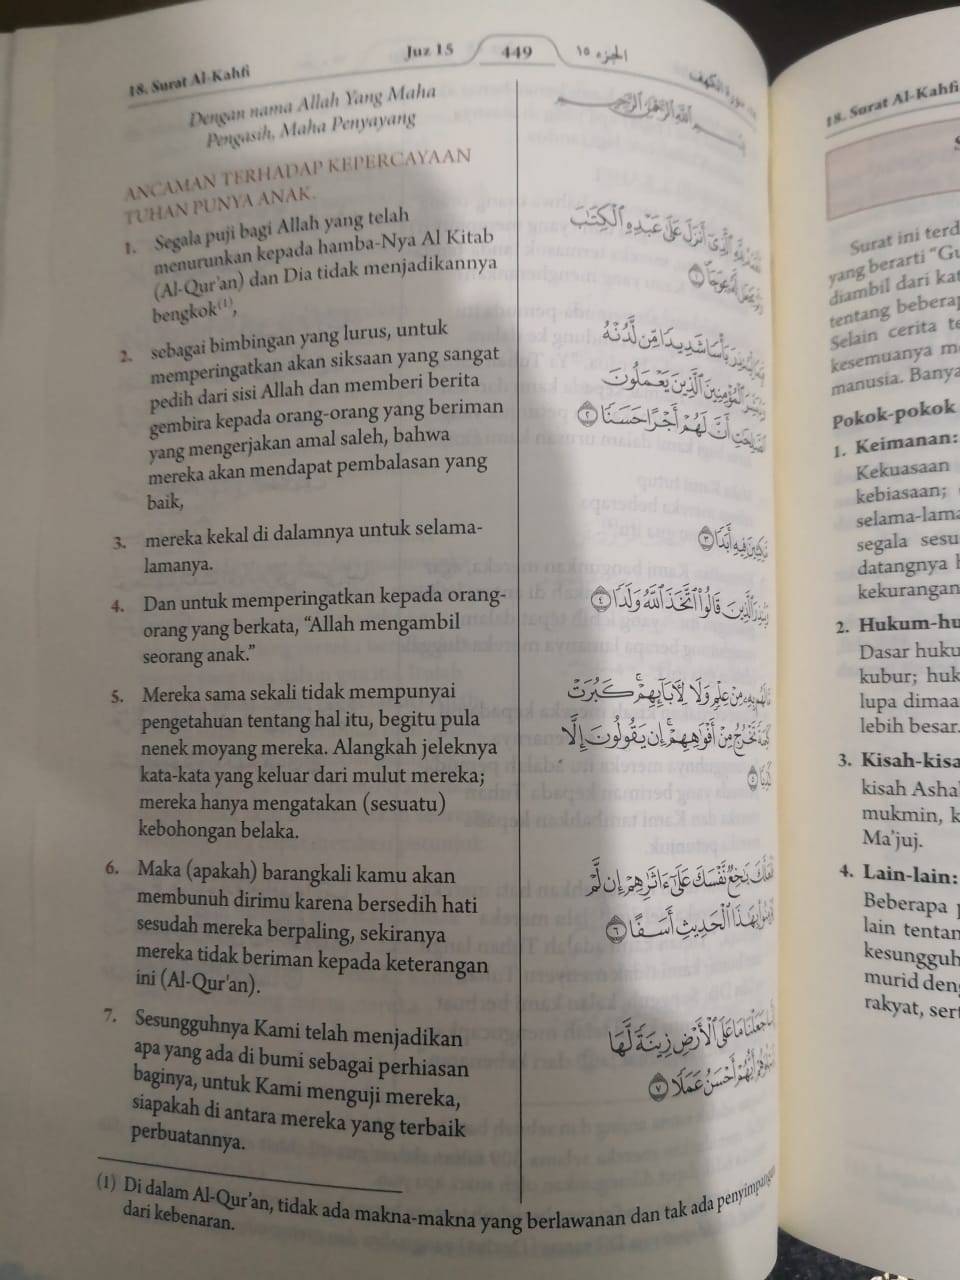 18. Surat Al-Kahfi
Juz 15
449
الجزء ١٥
سورة الكهف
Dengan nama Allah Yang Maha
Pengasih, Maha Penyayang
ANCAMAN TERHADAP KEPERCAYAAN
TUHAN PUNYA ANAK.
1. Segala puji bagi Allah yang telah
menurunkan kepada hamba-Nya Al Kitab
(Al-Qur'an) dan Dia tidak menjadikannya
bengkok(1),
2. sebagai bimbingan yang lurus, untuk
memperingatkan akan siksaan yang sangat
pedih dari sisi Allah dan memberi berita
gembira kepada orang-orang yang beriman
yang mengerjakan amal saleh, bahwa
mereka akan mendapat pembalasan yang
baik,
3. mereka kekal di dalamnya untuk selama-
lamanya.
4. Dan untuk memperingatkan kepada orang-
orang yang berkata, "Allah mengambil
seorang anak."
5. Mereka sama sekali tidak mempunyai
pengetahuan tentang hal itu, begitu pula
nenek moyang mereka. Alangkah jeleknya
kata-kata yang keluar dari mulut mereka;
mereka hanya mengatakan (sesuatu)
kebohongan belaka.
6. Maka (apakah) barangkali kamu akan
membunuh dirimu karena bersedih hati
sesudah mereka berpaling, sekiranya
mereka tidak beriman kepada keterangan
ini (Al-Qur'an).
7. Sesungguhnya Kami telah menjadikan
apa yang ada di bumi sebagai perhiasan
baginya, untuk Kami menguji mereka,
siapakah di antara mereka yang terbaik
perbuatannya.
بِسْمِ اللَّهِ الرَّحْمَٰنِ الرَّحِيمِ
الَّذِي أَنزَلَ عَلَىٰ عَبْدِهِ الْكِتَابَ
عِوَجًا ١
بَأْسًا شَدِيدًا مِّن لَّدُنْهُ
الْمُؤْمِنِينَ الَّذِينَ يَعْمَلُونَ
أَنَّ لَهُمْ أَجْرًا حَسَنًا ٢
فِيهِ أَبَدًا ٣
الَّذِينَ قَالُوا اتَّخَذَ اللَّهُ وَلَدًا ٤
بِهِ مِنْ عِلْمٍ وَلَا لِآبَائِهِمْ كَبُرَتْ
تَخْرُجُ مِنْ أَفْوَاهِهِمْ إِن يَقُولُونَ إِلَّا
بَاخِعٌ نَّفْسَكَ عَلَىٰ آثَارِهِمْ إِن لَّمْ
بِهَٰذَا الْحَدِيثِ أَسَفًا ٦
جَعَلْنَا مَا عَلَى الْأَرْضِ زِينَةً لَّهَا
أَيُّهُمْ أَحْسَنُ عَمَلًا ٧
(1) Di dalam Al-Qur'an, tidak ada makna-makna yang berlawanan dan tak ada penyimpangan
dari kebenaran.
18. Surat Al-Kahfi
Surat ini
yang berarti
diambil dari
tentang
Selain cerita
kesemuanya
manusia.
Pokok-pokok
1. Keimanan:
Kekuasaan
kebiasaan;
segala
datangnya
kekurangan
2.
Dasar
kubur;
lupa
lebih besar.
3.
kisah
mukmin,
Ma'juj.
4. Lain-lain:
Beberapa
lain
murid
rakyat,